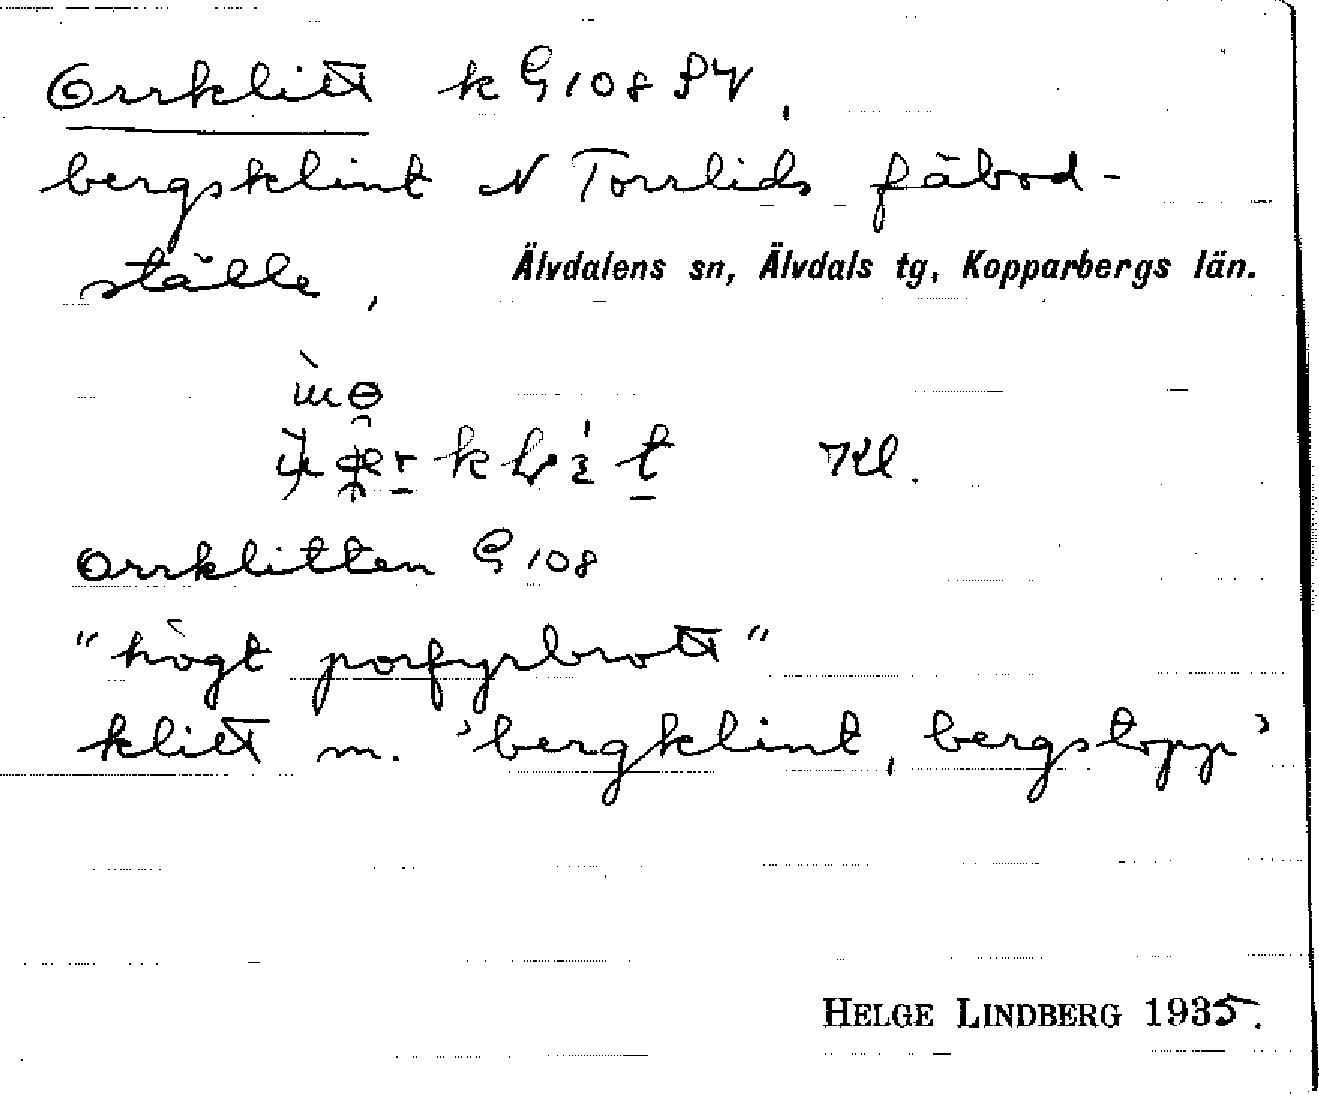 Orrklitt k G 108 SV,
bergsklint N Torrlids fäbod-
ställe, Älvdalens sn, Älvdals tg, Kopparbergs län.
Kl.
Orrklitten G 108
"högt porfyrbrott"
klitt m. 'bergklint, bergstopp'
HELGE LINDBERG 1935.